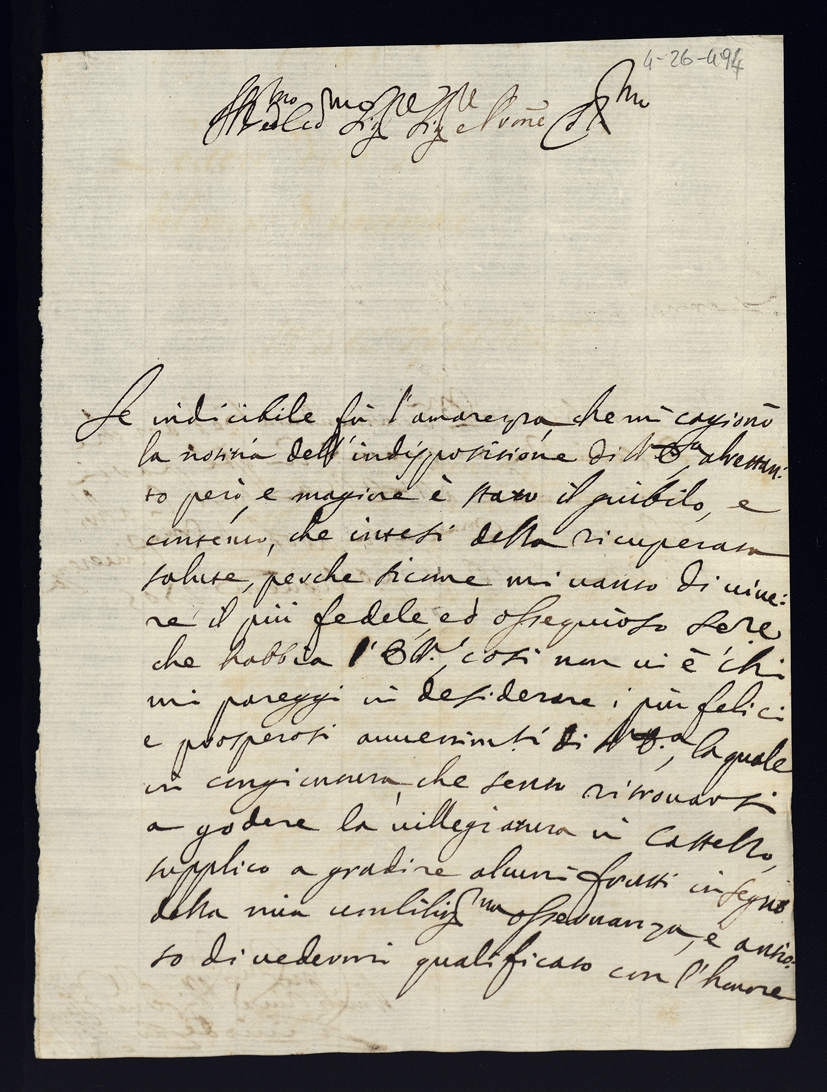 4-26-494
Ill.mo et Ecc.mo Sig.re Sig.re e Prone Col.mo
Se indicibile fù l'amarezza, che mi cagionò
la notitia dell'indispositione di V. E.a, altrettan:
to però, e magiore è stato il giubilo, e
contento, che intesi della ricuperata
salute, perche sicome mi vanto di vive:
re il più fedele, ed ossequioso Sere
che habbia l'E. V., così non vi è chi
mi pareggi in desiderare i più felici
e prosperosi avvenimti di V. E.a, la quale
in congiuntura che sento ritrovarsi
a godere la villegiatura in Castello,
supplico a gradire alcuni frutti in segno
della mia umilissma osservanza, e ansio:
so di vedermi qualificato con l'honore